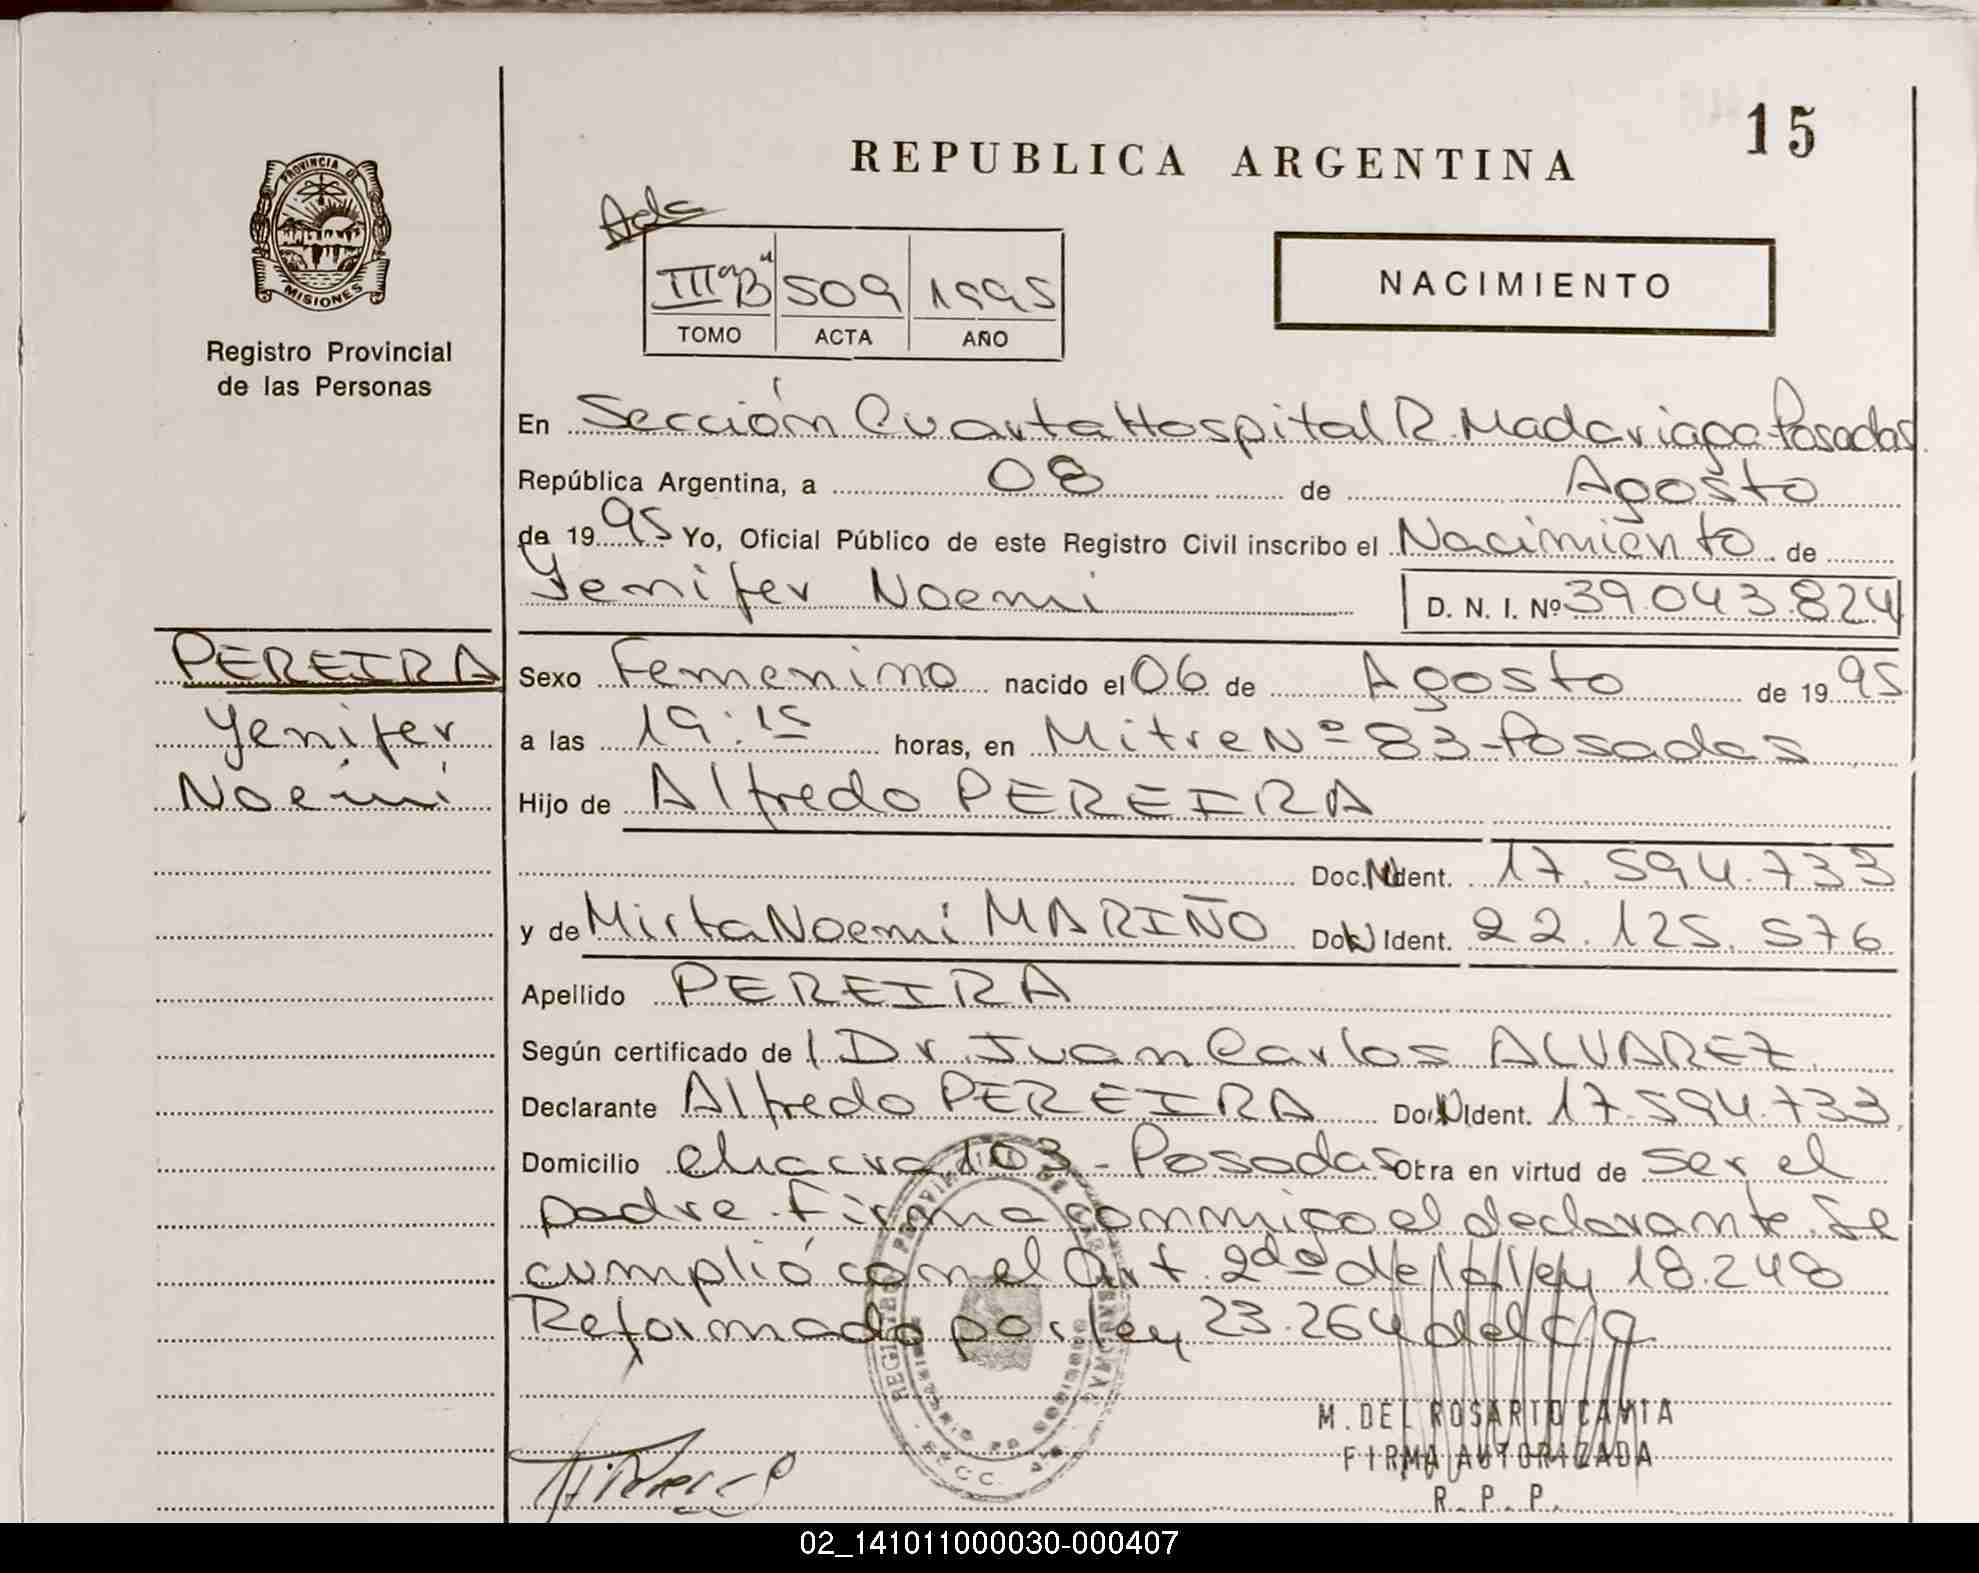 15
REPUBLICA ARGENTINA
PROVINCIA DE
MISIONES
Registro Provincial
de las Personas
III "B" 509 1995
TOMO ACTA AÑO
NACIMIENTO
En Sección Cuarta Hospital R. Madariaga-Posadas
República Argentina, a 08 de Agosto
de 1995 Yo, Oficial Público de este Registro Civil inscribo el Nacimiento de
Yenifer Noemi D. N. I. Nº 39.043.824
PEREIRA
Yenifer
Noemi
Sexo Femenino nacido el 06 de Agosto de 1995
a las 19:15 horas, en Mitre Nº 83-Posadas
Hijo de Alfredo PEREIRA
Doc. Ident. 17.594.733
y de Mirta Noemi MARIÑO Doc. Ident. 22.125.576
Apellido PEREIRA
Según certificado de Dr. Juan Carlos ALVAREZ.
Declarante Alfredo PEREIRA Doc. Ident. 17.594.733
Domicilio chacra 103 - Posadas Otra en virtud de ser el
padre. Firma conmigo el declarante. Se
cumplió con el Art. 2do de la ley 18.248
Reformado por ley 23.264 del
M. DEL ROSARIO CAVIA
FIRMA AUTORIZADA
R. P. P.
02_141011000030-000407